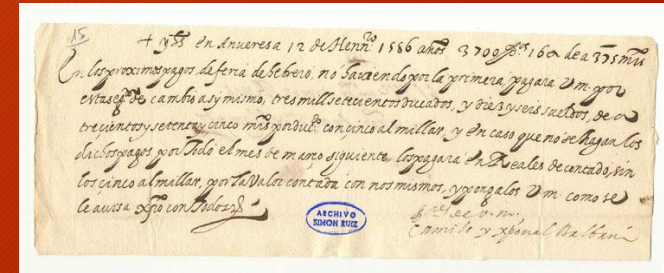 15
+ yhs en Anveresa 12 de Henno. 1586 años 3700 ds. 16 s de a 375 mrs
En los proximos pagos, de feria de hebrero, no haviendo por la primera pagara Vm. por
esta segda. de cambio a sy mismo, tres mill setecientos ducados, y diez y seis sueldos, de a
trecientos y setenta y cinco mrs por ducdo. con cinco al millar, y en caso que no se hagan los
dichos pagos por todo el mes de março siguiente los pagará en Reales de contado, sin
los cinco al millar, por la Valor contada con nos mismos, y pongalos Vm. como se
le avisa xpo con todos
ARCHIVO
SIMON RUIZ
de v. m.
Camilo y xpoval Balbani